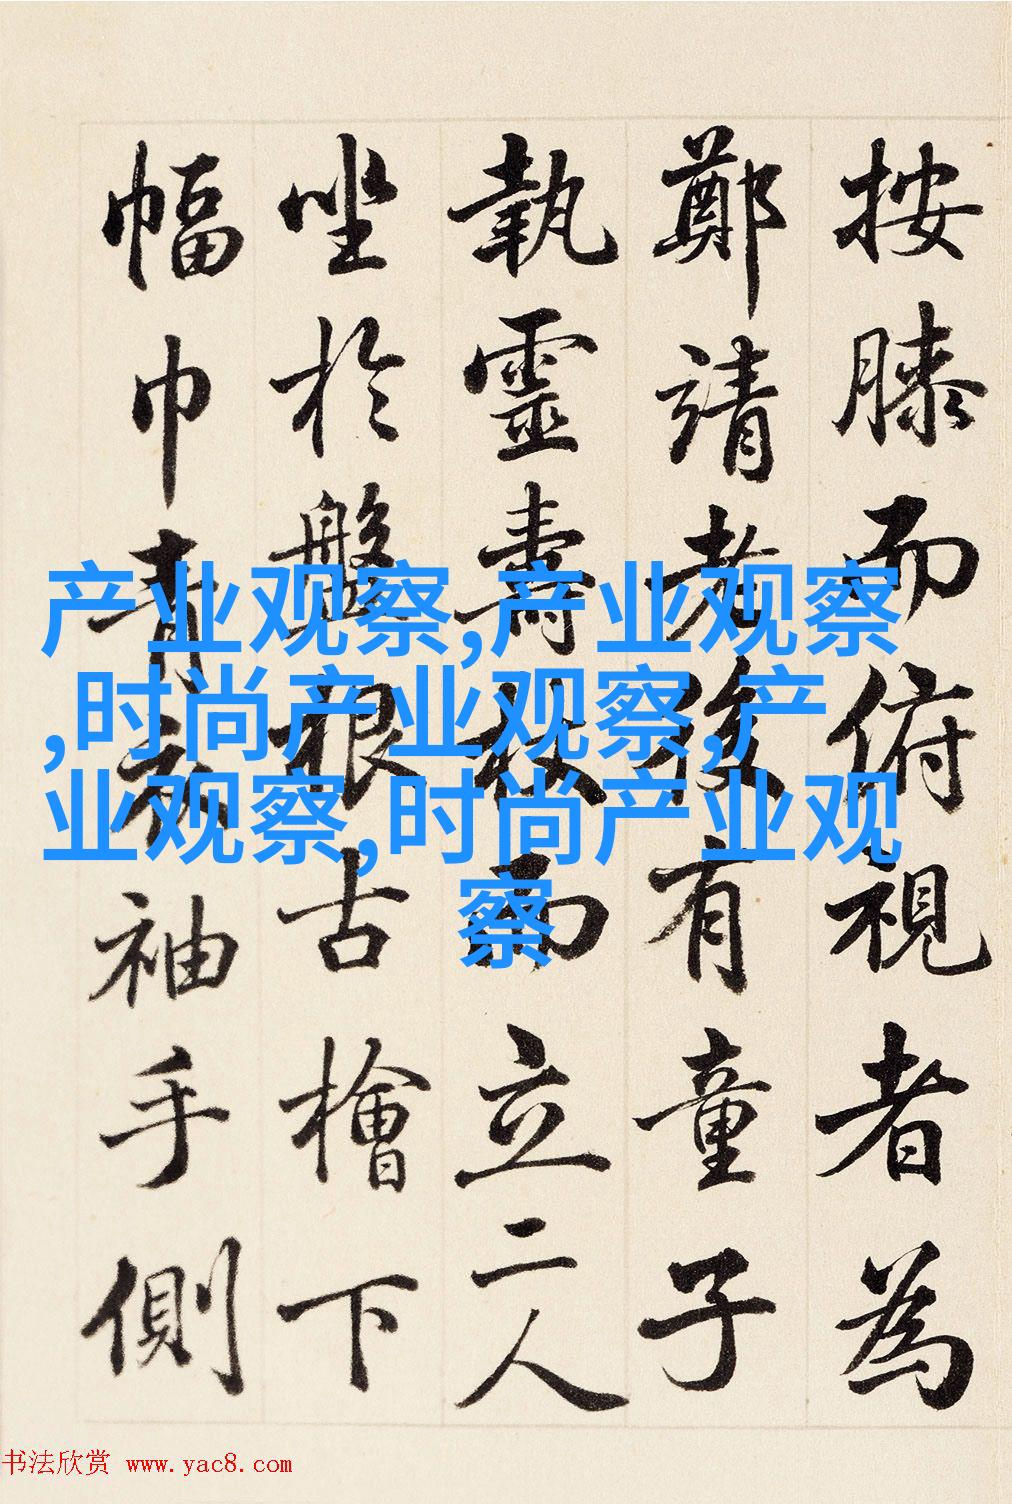 按膝而俯視者為
鄭靖老後有童子
執靈壽杖而立二人
坐於盤根古檜下
幅巾青衣袖手側
产业观察,产业观察
,时尚产业观察,产
业观察,时尚产业观
察
书法欣赏 www.yac8.com